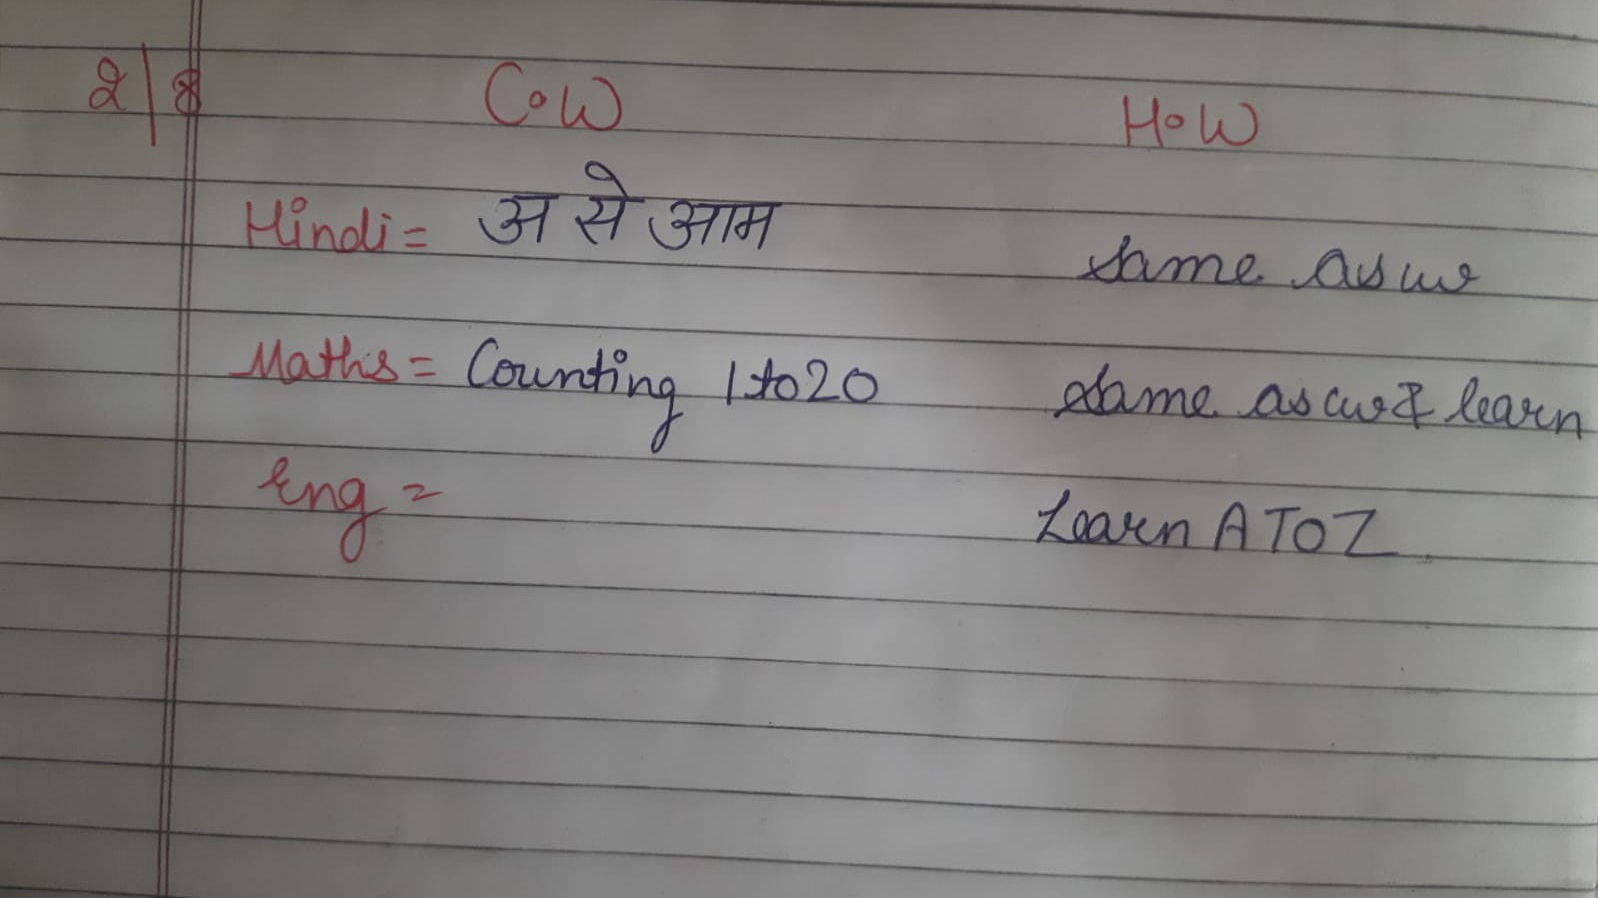 2/8 C.W H.W
Hindi = अ से आम same as cw
Maths = Counting 1 to 20 same as cw & learn
Eng = Learn A TO Z